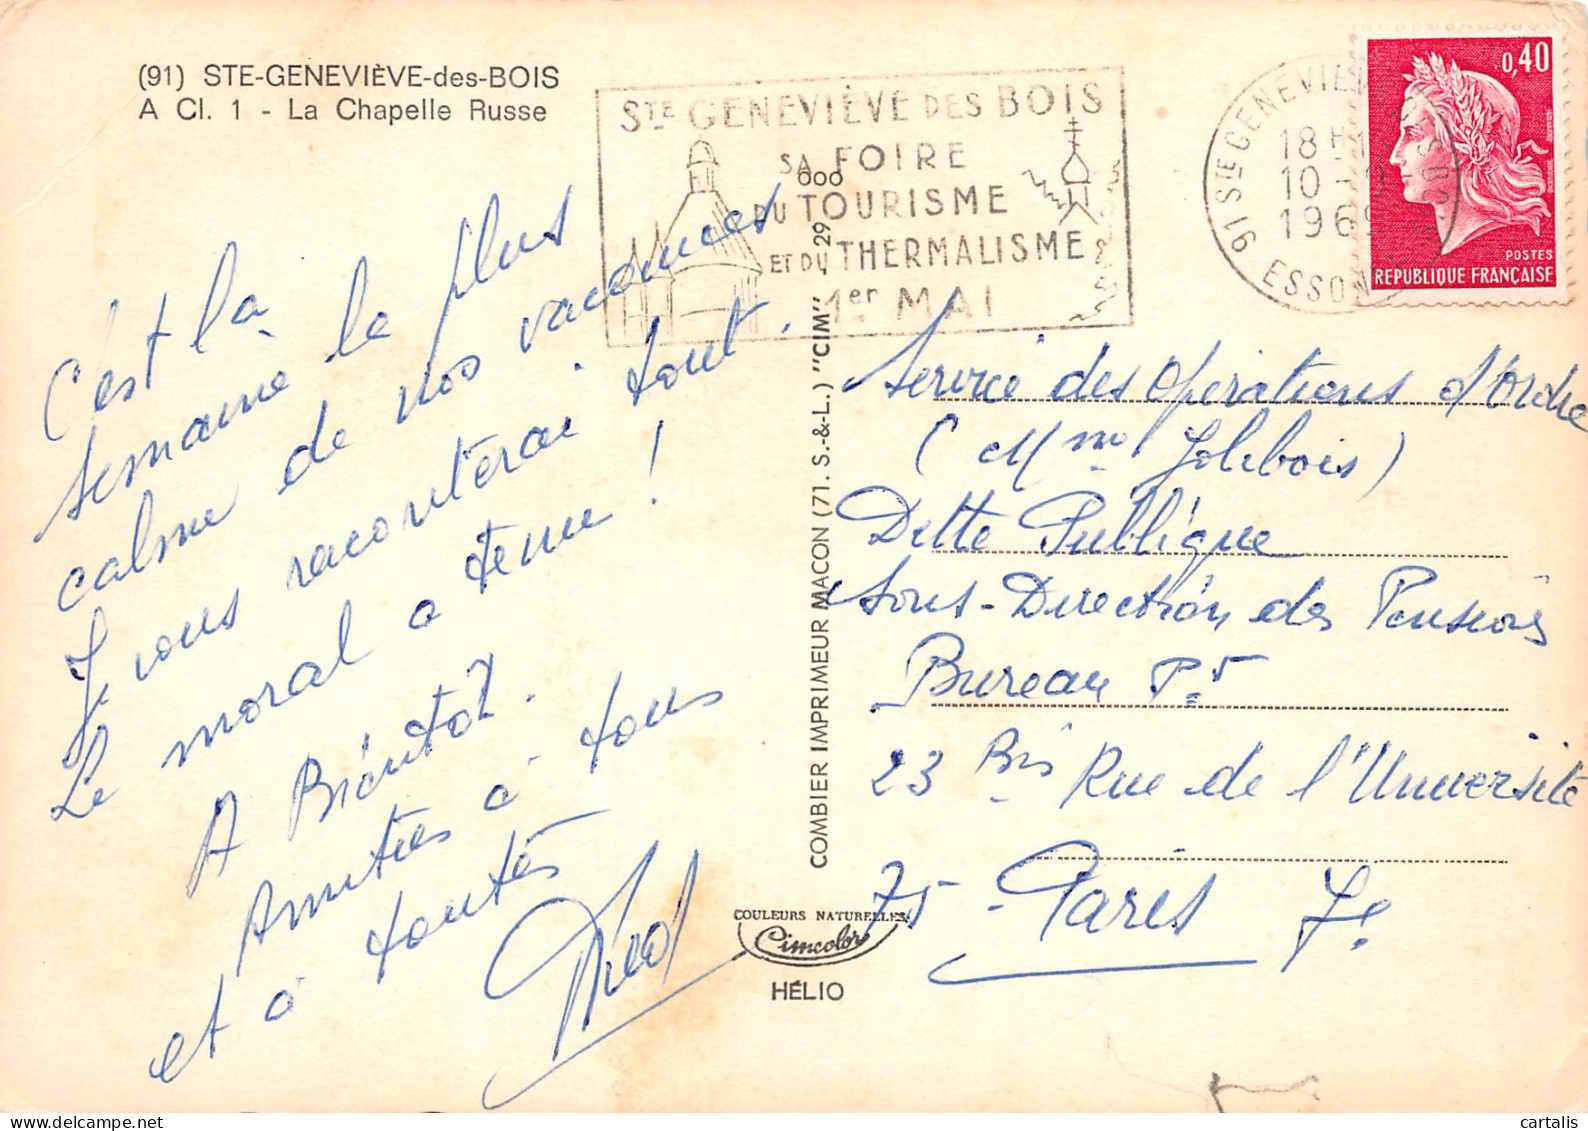 (91) STE-GENEVIÈVE-des-BOIS
A Cl. 1 - La Chapelle Russe
STE GENEVIÈVE DES BOIS
SA FOIRE
DU TOURISME
ET DU THERMALISME
1er MAI
91 STE GENEVIEVE DES BOIS
18 H
10 - 9
1969
ESSONNE
0,40
POSTES
REPUBLIQUE FRANÇAISE
C'est la
semaine la plus
calme de nos vacances
Je vous raconterai tout.
Le moral a tenu !
A Biéntot.
Amitiés à tous
et à toutes
COMBIER IMPRIMEUR MACON (71. S.-&-L.) "CIM" 29
000
COULEURS NATURELLES
Cimcolor
HÉLIO
Service des Opérations d'Ordre
(Mme Jolibois)
Dette Publique
Sous-Direction des Pensions
Bureau P.5
23 Bis Rue de l'Université
75 - Paris 7e
cartalis